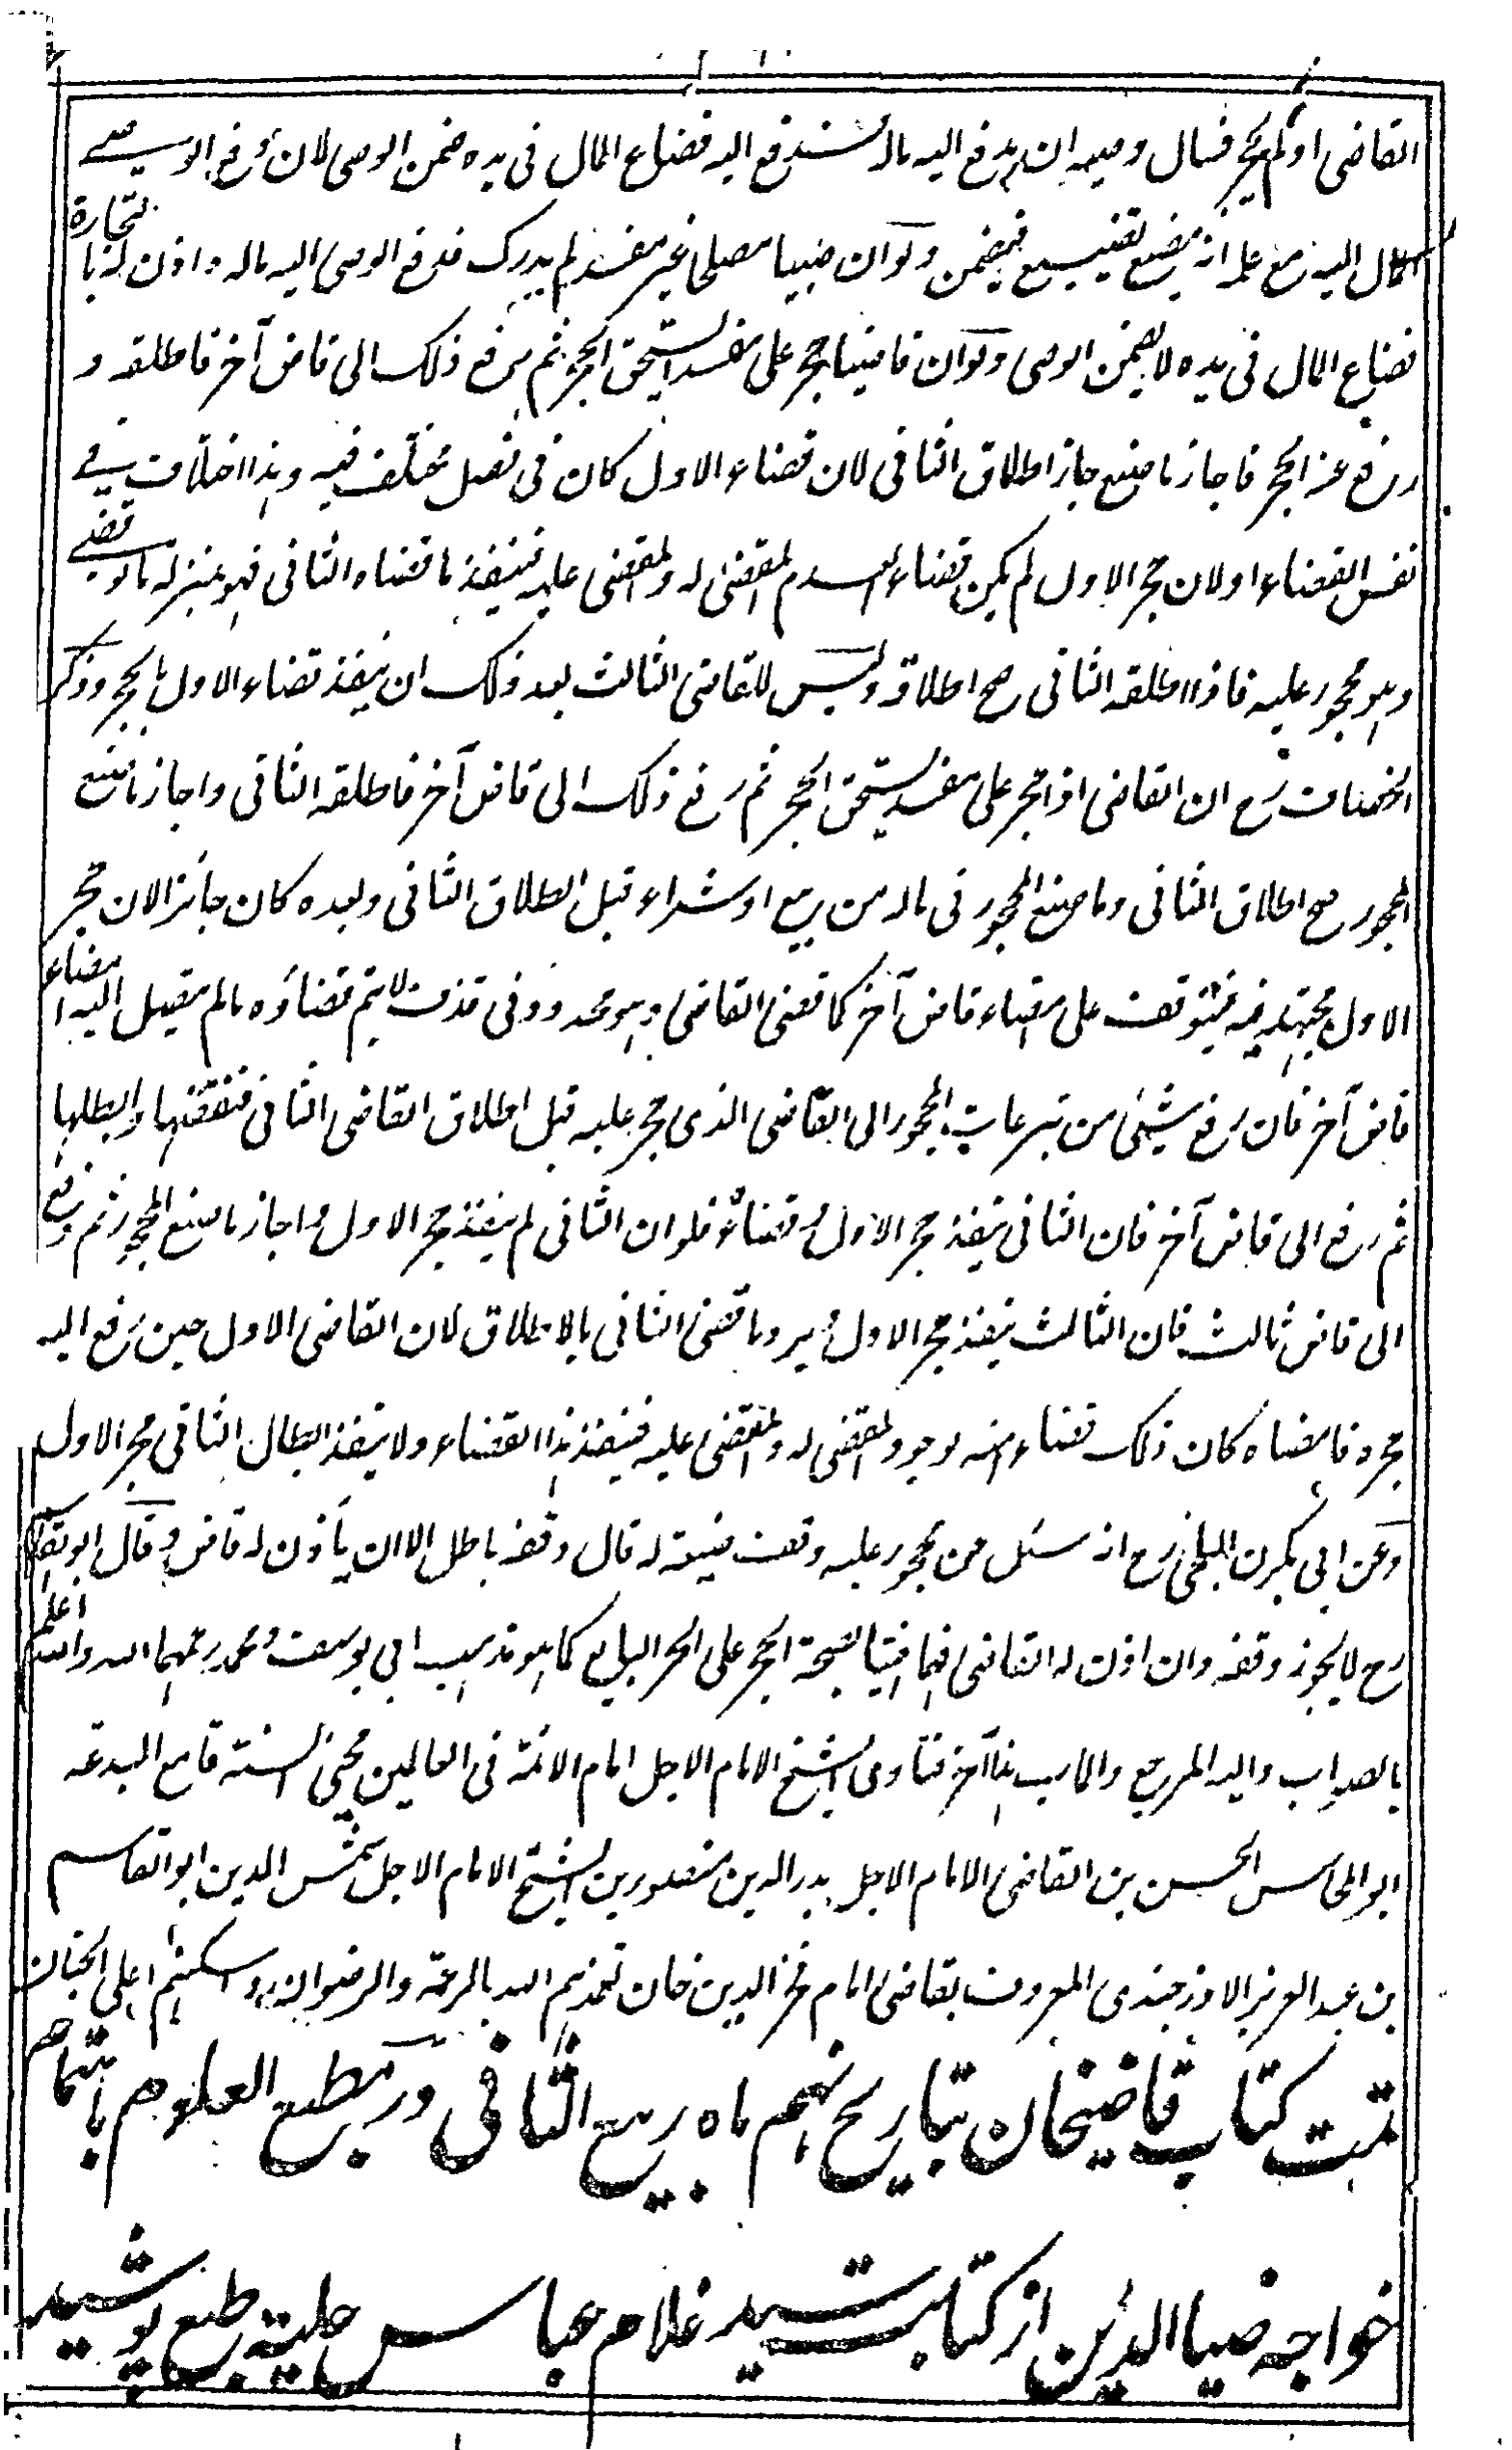 القاضی او لم یحجر فسال وصیه ان یدفع الیه ماله فدفع الیه فضاع المال فی یده ضمن الوصی لان دفع الوصی
المال الیه مع علمه انه یضیع تضییع فیضمن ولو ان صبیا مصلحا غیر مفسد لم یدرک فدفع الوصی الیه ماله واذن له بالتجارة
فضاع المال فی یده لا یضمن الوصی ولو ان قاضیا حجر علی مفسد یستحق الحجر ثم رفع ذلک الی قاض آخر فاطلقه و
رفع عنه الحجر فاجاز ما صنع جاز اطلاق الثانی لان قضاء الاول کان فی فصل مختلف فیه وهذا اختلاف فی
نفس القضاء اولان حجر الاول لم یکن قضاء لعدم المقضی له والمقضی علیه فینفذ ما قضاه الثانی فهو بمنزلة ما لو قضی
وهو محجور علیه فاذا اطلقه الثانی صح اطلاقه ولیس للقاضی الثالث بعد ذلک ان ینفذ قضاء الاول بالحجر وذکر
الخصاف رح ان القاضی اذا حجر علی مفسد یستحق الحجر ثم رفع ذلک الی قاض آخر فاطلقه الثانی واجاز ما صنع
المحجور صح اطلاق الثانی وما صنع المحجور فی ماله من بیع او شراء قبل اطلاق الثانی وبعده کان جائزا لان حجر
الاول مجتهد فیه فیتوقف علی امضاء قاض آخر کما قضی القاضی وهو محدود فی قذف لا یتم قضاؤه ما لم یتصل الیه امضاء
قاض آخر فان رفع شیئی من تبرعات المحجور الی القاضی الذی حجر علیه قبل اطلاق القاضی الثانی فنقضها وابطلها
ثم رفع الی قاض آخر فان الثانی ینفذ حجر الاول وقضاءه فلو ان الثانی لم ینفذ حجر الاول واجاز ما صنع المحجور ثم رفع
الی قاض ثالث فان الثالث ینفذ حجر الاول ویرد ما قضی الثانی بالاطلاق لان القاضی الاول حین رفع الیه
حجره فامضاه کان ذلک قضاء منه لوجود المقضی له والمقضی علیه فینفذ هذا القضاء ولا ینفذ ابطال الثانی حجر الاول
وعن ابی بکرن البلخی رح انه سئل عن محجور علیه وقف ضیعة له قال وقفه باطل الا ان یأذن له قاض وقال ابو القاسم
رح لا یجوز وقفه وان اذن له القاضی فهما افتیا بصحة الحجر علی الحر البالغ کما هو مذهب ابی یوسف ومحمد رحمهما الله والله اعلم
بالصواب والیه المرجع والمآب هذا آخر فتاوی الشیخ الامام الاجل امام الائمة فی العالمین محیی السنة قامع البدعة
ابو المحاسن الحسن بن القاضی الامام الاجل بدر الدین منصور بن الشیخ الامام الاجل شمس الدین ابو القاسم
بن عبد العزیز الاوزجندی المعروف بقاضی امام فخر الدین خان تغمدهم الله بالرحمة والرضوان واسکنهم اعلی الجنان
تمت کتاب قاضیخان بتاریخ نهم ماه ربیع الثانی در مطبع العلوم باهتمام
خواجه ضیاالدین از کتابت سید غلام عباس حلیة طبع پوشید